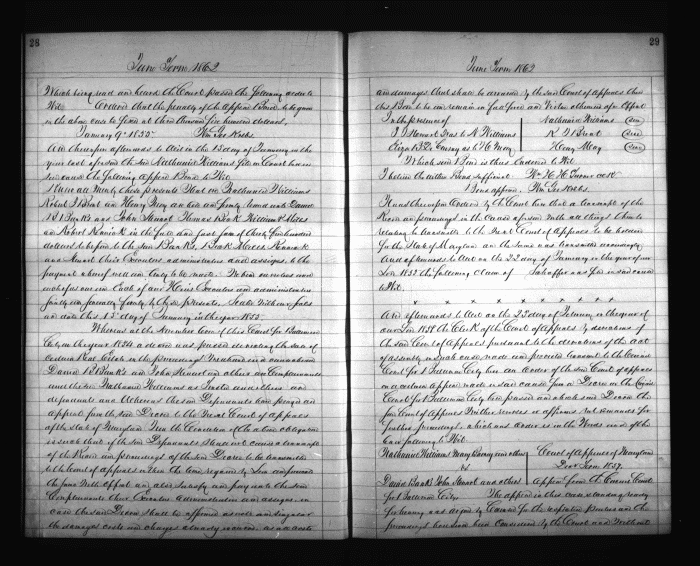 28
June Term 1862
Which being read and heard the Court passed the following order to
Wit. Ordered that the penalty of the Appeal Bond to be given
in the above case be fixed at three thousand five hundred dollars,
January 9th 1855. Wm Geo Krebs.
And thereupon afterwards to Wit on the 15 day of January in the
year last aforesaid the said Nathaniel Williams filed in Court here in
said cause the following appeal Bond to Wit
Know all Men by these presents That we Nathaniel Williams
Robert J Brent and Henry May are held and firmly bound unto Daniel
B Banks and John Stewart Thomas William
and Robert in the full and just sum of thirty five hundred
dollars to be paid to the said Banks,
and Stewart their Executors administrators and assigns to the
payment whereof well and truly to be made We bind ourselves and
each of us our and Each of our Heirs Executors and administrators
jointly and severally firmly by these presents, Sealed with our Seals
and dated this 15th day of January in the year 1855.
Whereas at the November term of this Court for Baltimore
City in the year 1854 a decree was passed decreeing the sale of
certain Real Estate in the proceedings mentioned in a cause wherein
Daniel B. Banks and John Stewart and others are Complainants
and these Nathaniel Williams as Trustee and others are
defendants and Whereas the said Defendants have prayed an
appeal from the said Decree to the next Court of appeals
of the State of Maryland Now the Condition of the above obligation
is such that if the said Defendants shall not cause a transcript
of the Record and proceedings of the said Decree to be transmitted
to the Court of appeals within the time required by Law and prosecute
the same with effect and also satisfy and pay unto the said
Complainants their Executors Administrators and assigns in
case the said Decree shall be affirmed as well and singular
the damages costs and charges already incurred as all costs
29
June Term 1862
and damages that shall be awarded by the said Court of appeals then
this Bond to be and remain in full force and virtue otherwise of no Effect
In the presence of Nathaniel Williams (Seal)
J J Stewart as to N Williams R J Brent (Seal)
as to H May Henry May (Seal)
Which said Bond is thus Endorsed to Wit.
I believe the within Bond sufficient
Bond approved. Wm Geo Krebs.
It was thereupon Ordered by the Court here that a transcript of the
Record and proceedings in the cause aforesaid with all things thereto
relating be transmitted to the next Court of appeals to be holden
for the State of Maryland and the same was transmitted accordingly
And afterwards to Wit on the 22 day of January in the year of our
Lord 1855 the following Claim of was filed in said cause
to Wit.
x x x x x x x x
And afterwards to Wit on the 23 day of February in the year of
our Lord 1858 the Clerk of the Court of appeals by directions of
the said Court of Appeals pursuant to the directions of the act
of assembly in such case made and provided transmit to the Circuit
Court for Baltimore City here an Order of the said Court of appeals
on a certain appeal made in said cause from a Decree in the Circuit
Court for Baltimore City here passed and which said Decree the
said Court of Appeals neither reverses or affirms but remands for
further proceedings, which said order is in the words and of the
tenor following to Wit.
Nathaniel Williams Mary and others Court of Appeals of Maryland
vs Decr Term 1857.
Daniel Banks John Stewart and others Appeal from the Circuit Court
for Baltimore City. The appeal in this case standing ready
for hearing was argued by Counsel for the respective parties and the
proceedings have since been considered by the Court and Without